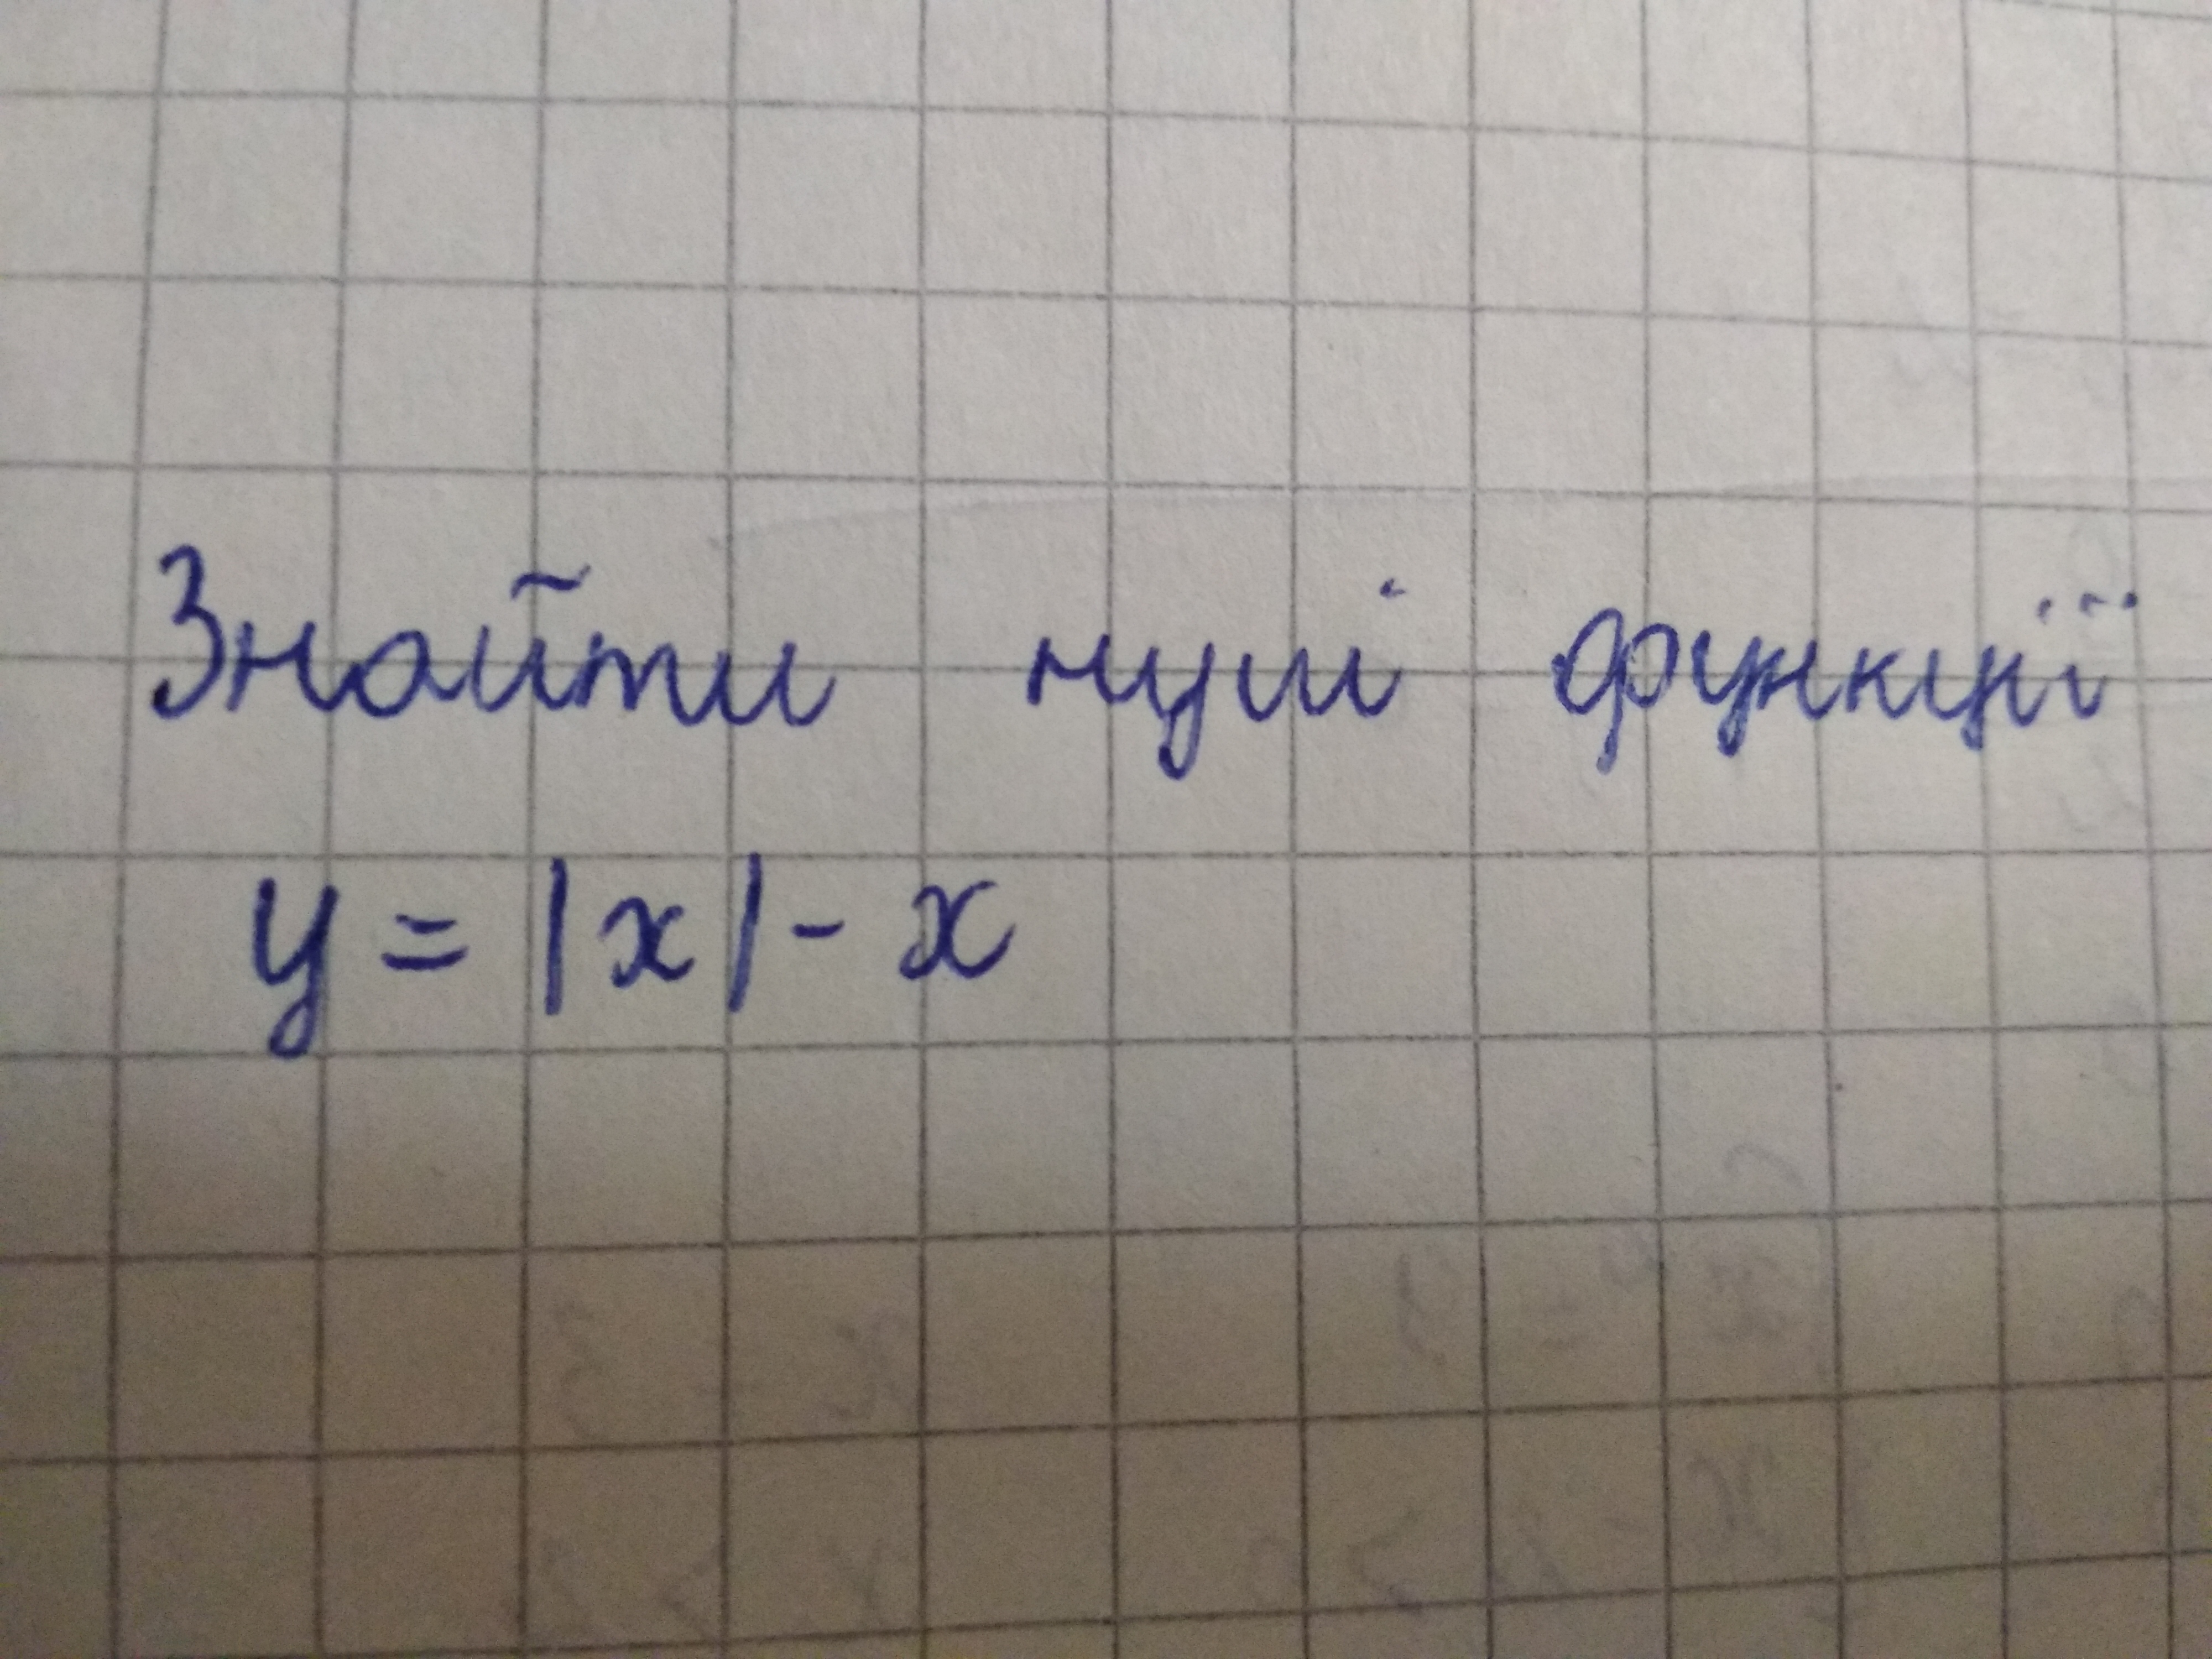 Знайти нулі функції
y = |x| - x